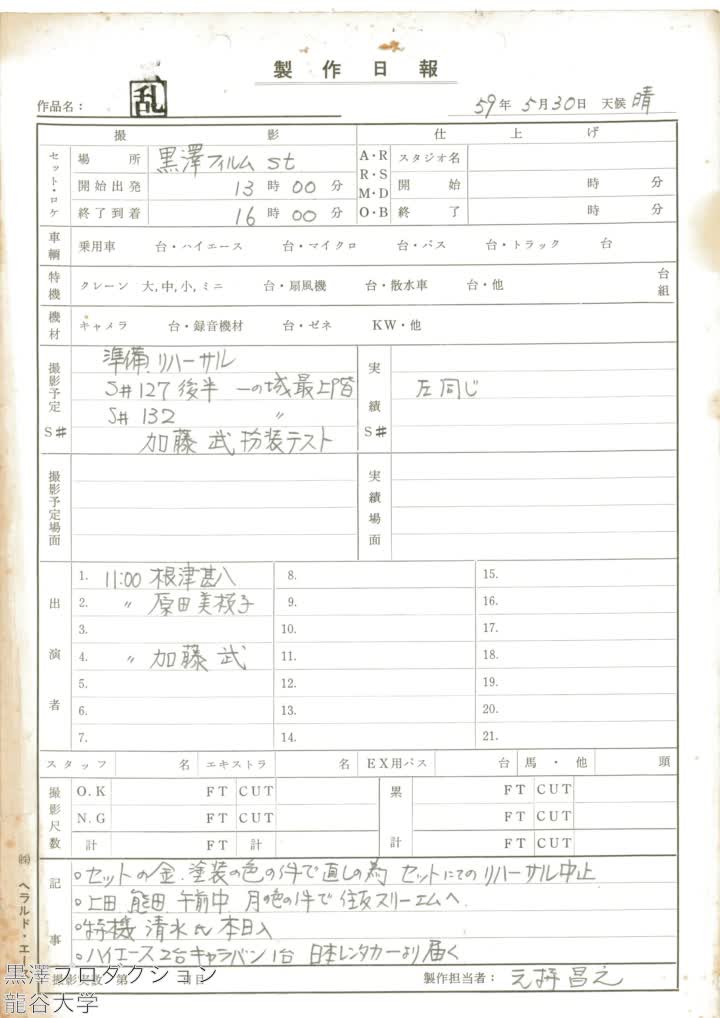 製作日報
作品名： 乱
59年 5月30日 天候 晴
撮影 仕上げ
セット・ロケ 場所 黒澤フィルム st A・R スタジオ名
開始出発 13時00分 R・S M・D 開始 時 分
終了到着 16時00分 O・B 終了 時 分
車輌 乗用車 台・ハイエース 台・マイクロ 台・バス 台・トラック 台
特機 クレーン 大,中,小,ミニ 台・扇風機 台・散水車 台・他 台組
機材 キャメラ 台・録音機材 台・ゼネ KW・他
撮影予定 S# 準備.リハーサル 実績 S#
S#127後半 一の城最上階 左同じ
S#132 〃
加藤 武 扮装テスト
撮影予定場面 実績場面
出演者
1. 11:00 根津甚八 8. 15.
2. 〃 原田美枝子 9. 16.
3. 10. 17.
4. 〃 加藤 武 11. 18.
5. 12. 19.
6. 13. 20.
7. 14. 21.
スタッフ 名 エキストラ 名 EX用バス 台 馬・他 頭
撮影尺数 O.K FT CUT 累計 FT CUT
N.G FT CUT FT CUT
計 FT 計 FT CUT
記事
○セットの金.塗装の色の件で直しの為 セットにてのリハーサル中止
○上田 能田 午前中 月の色の件で 住友スリーエムへ.
○特機 清水氏 本日入
○ハイエース2台キャラバン1台 日本レンタカーより届く
撮影実数 第 日目 製作担当者：
㈱ ヘラルド・エー
黒澤プロダクション
龍谷大学